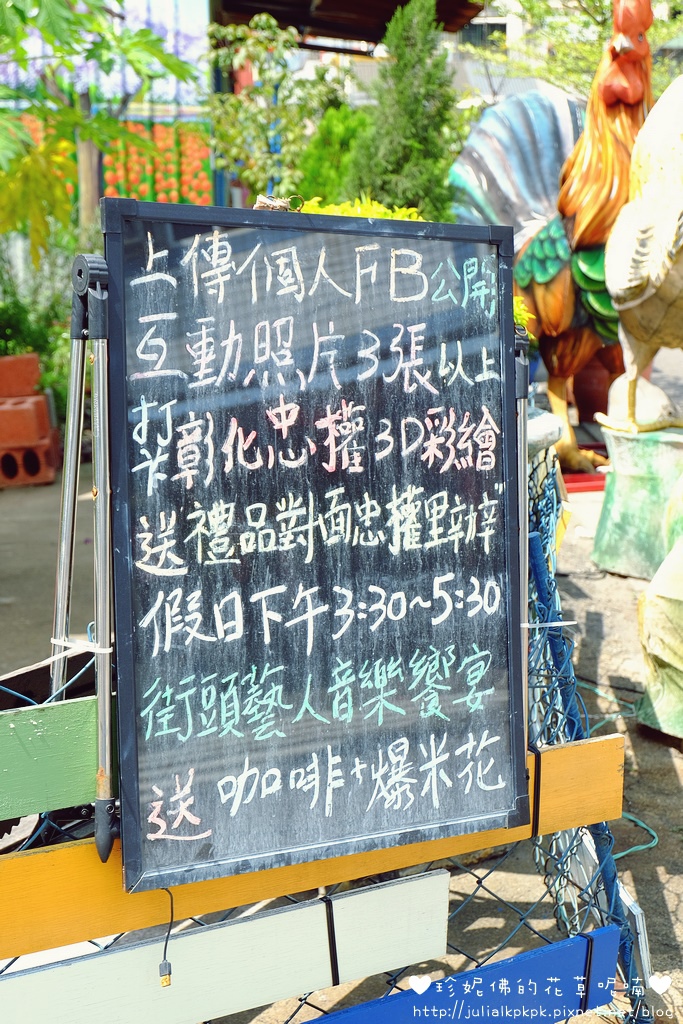 上傳個人FB公開,
互動照片3張以上
打卡彰化忠權3D彩繪
送禮品對面忠權里辦"
假日下午3:30~5:30
街頭藝人音樂饗宴
送咖啡+爆米花
♥珍妮佛的花草呢喃♥
http://julialkpkpk.pixnet.net/blog